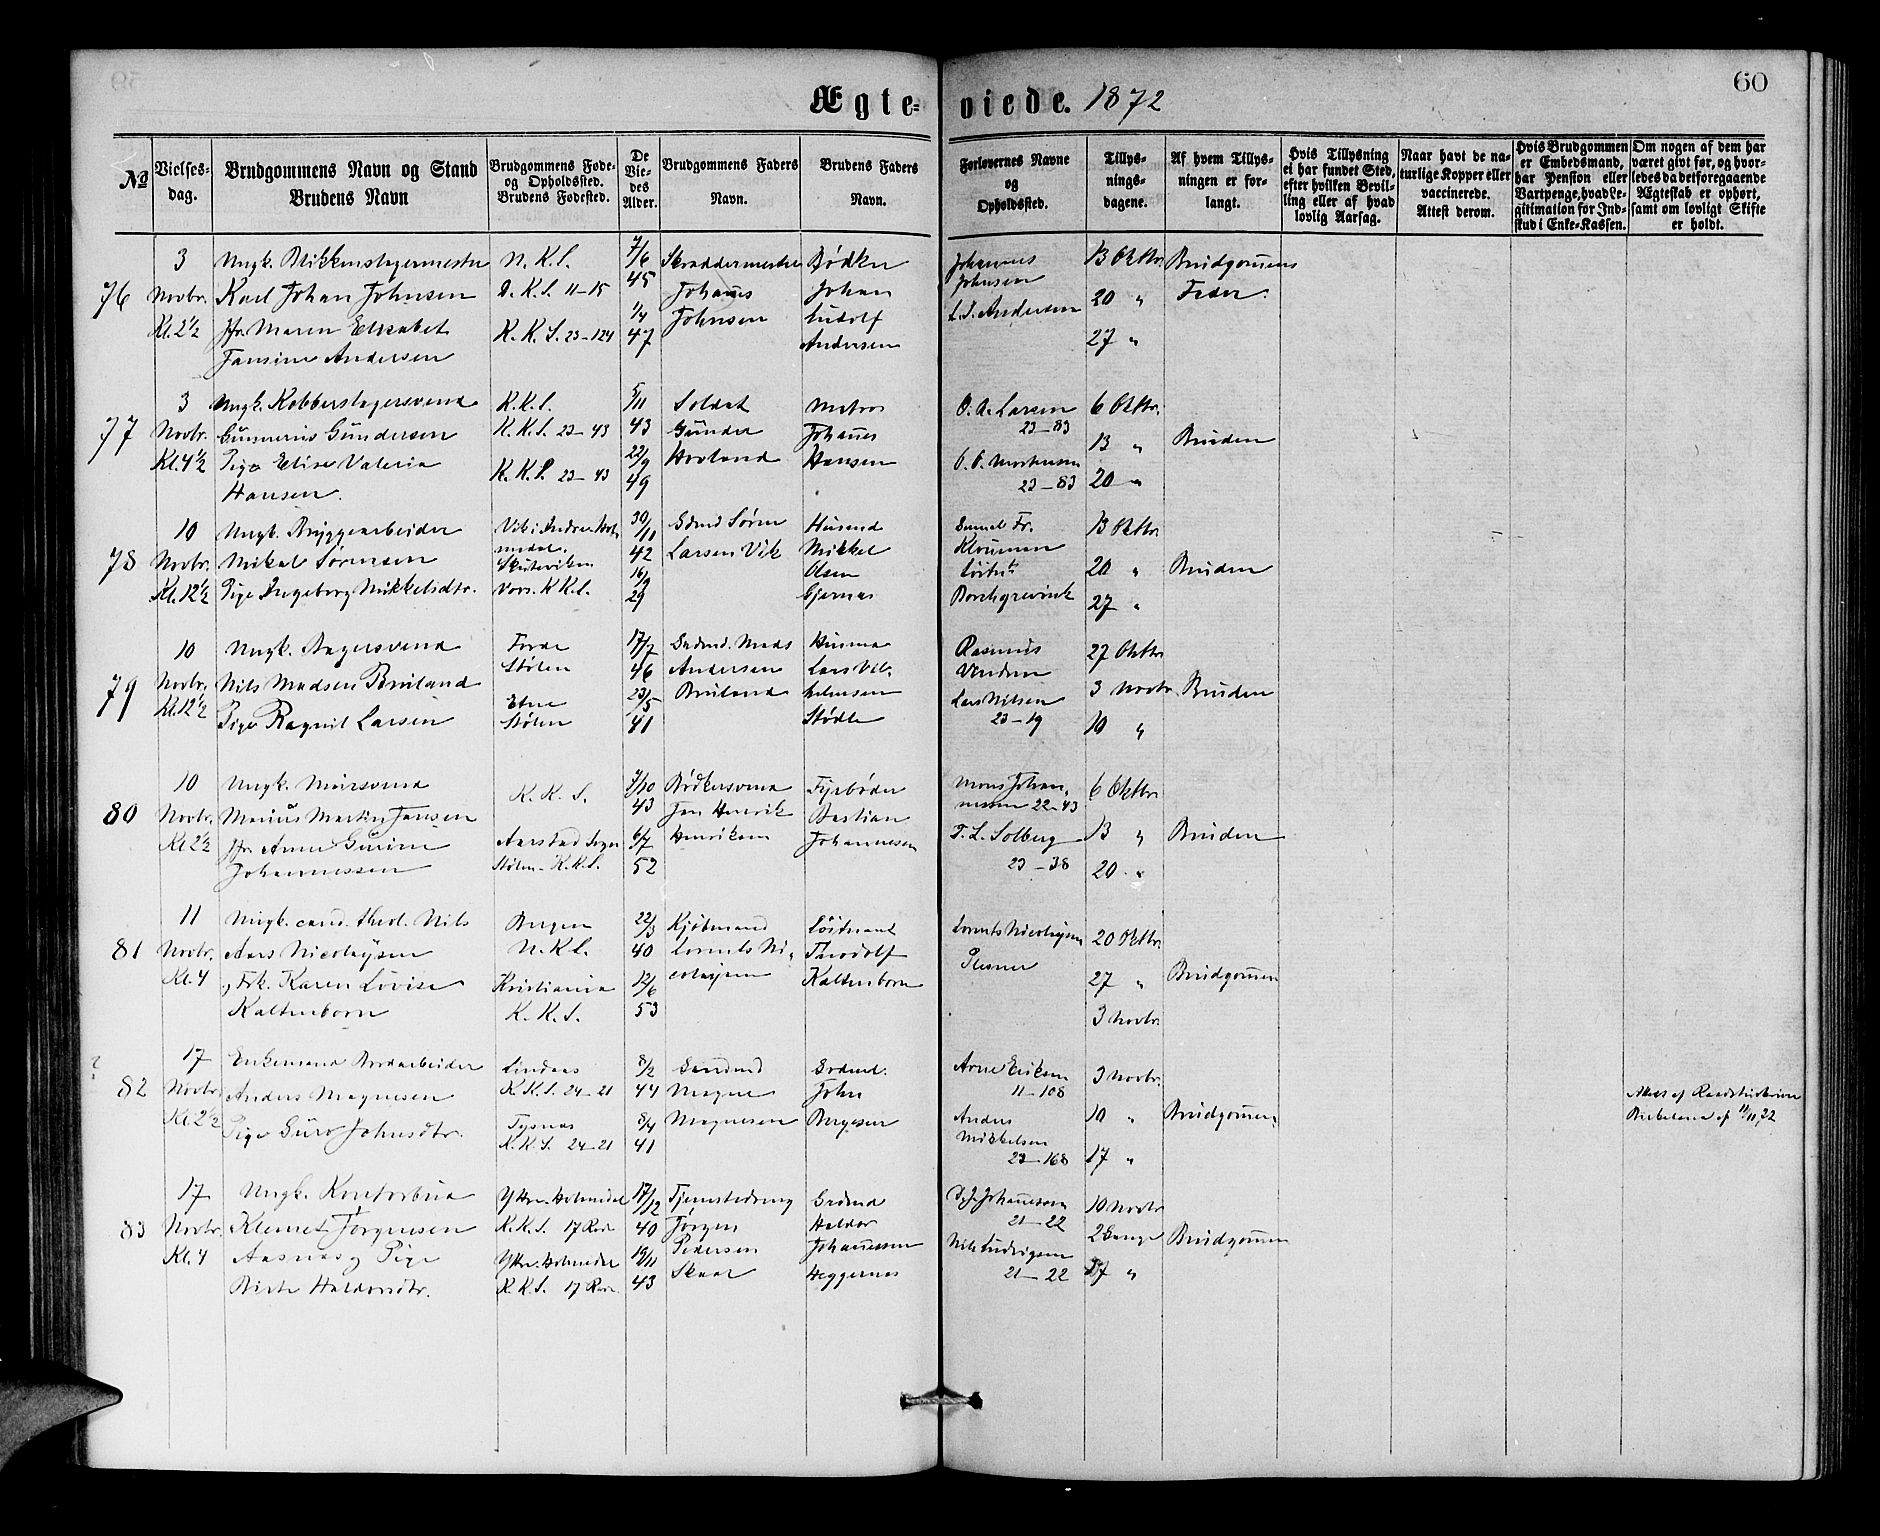 Ægte-viede. 1872
60
No
Vielses-
dag.
Brudgommens Navn og Stand
Brudens Navn
Brudgommens Føde-
og Opholdssted.
Brudens Fødested.
De
Vie-
des
Alder.
Brudgommens Faders
Navn.
Brudens Faders
Navn.
Forlovernes Navne
og
Opholdssted.
Tillys-
nings-
dagene.
Af hvem Tillys-
ningen er for-
langt.
Hvis Tillysning
ei har fundet Sted,
efter hvilken Bevil-
ling eller af hvad
lovlig Aarsag.
Naar havt de na-
turlige Kopper eller
vaccinerede.
Attest derom.
Hvis Brudgommen
er Embedsmand,
har Pension eller
Vartpenge, hvad Le-
gitimation for Ind-
skud i Enke-Kassen.
Om nogen af dem har
været givt før, og hvor-
ledes da det foregaaende
Ægteskab er ophørt,
samt om lovligt Skifte
er holdt.
76
3
Novbr.
Kl. 2 1/2
Ungk. Blikkenslagermester
Karl Johan Johnsen
Jfr. Maren Elisabet
Jansine Andersen
N. K. S.
D. K. S. 11-15
K. K. S. 23-124
7/6
45
1/4
47
Skræddermester
Johans
Johnsen
Bødker
Johan
Ludolf
Andersen
Johannes
Johnsen
L. J. Andersen
13 Oktbr.
20 "
27 "
Brudgomens
Fader.
77
3
Novbr.
Kl. 4 1/2
Ungk. Kobberslagersvend
Gunnerius Gundersen
Pige Elise Valeria
Hansen.
K.K.S.
K.K.S. 23-43
K.K.S. 23-43
5/11
43
22/9
49
Soldat
Gunder
Hovland
Matros
Johanes
Hansen
O. A. Larsen
23-83
O. O. Mortensen
23-83
6 Oktbr.
13 "
20 "
Bruden
78
10
Novbr.
Kl. 12 1/2
Ungk. Bryggearbeider
Mikal Sørensen
Pige Ingeborg Mikkelsdtr.
Vik i Indre Hol-
medal.
Skuteviken
Vors. K K S.
30/11
42
16/9
29
Grdmd Søren
Larsen Vik
Husmd
Mikkel
Olsen
Gjernes
Samuel Fr.
Klouman
Løitn.
Borchgrevink
13 Oktbr.
20 "
27 "
Bruden
79
10
Novbr.
Kl. 12 1/2
Ungk. Bagersvend
Nils Madsen Bruland
Pige Ragnil Larsen
Førde
Stølen
Etne
Stølen
17/7
46
23/5
41
Grdmd. Mads
Andersen
Bruland
Husmd
Lars Vil-
helmsen
Stødle
Rasmus
Lars Nilsen
23-19
27 Oktbr.
3 Novbr.
10 "
Bruden
80
10
Novbr.
Kl. 2 1/2
Ungk. Mursvend
Marius Martin Jansen
Jfr. Anne Gurine
Johannessen
K. K. S.
Aarstad Sogn
Stølen - K.K.S.
7/10
43
6/7
52
Bødkersvend
Jan Henrik
Henriksen
Fyrbøder
Bastian
Johannesen
Mons Johan-
nesen 22-43
T. L. Solberg
23-38
6 Oktbr.
13 "
20 "
Bruden
81
11
Novbr.
Kl. 4
Ungk. cand. theol. Nils
Aars Nicolaysen
Frk. Karen Lovise
Kaltenborn
Bergen
N. K. S.
Kristiania
K. K. S.
22/3
40
12/6
53
Kjøbmand
Lorents Ni-
colaysen
Løitnant
Theodolf
Kaltenborn
Lorents Nicolaysen
Plesner
20 Oktbr.
27 "
3 Novbr.
Brudgomen
82
17
Novbr.
Kl. 2 1/2
Enkemand Bordarbeider
Anders Magnesen
Pige Guro Johnsdtr.
Lindaas
K.K.S. 24-21
Tysnes
K.K.S. 24-21
8/2
44
8/4
41
Gaardmd
Magne
Magnesen
Grdmd.
John
Børgesen
Arne Eriksen
11-108
Anders
Mikkelsen
23-168
3 Novbr.
10 "
17 "
Brudgomen
83
17
Novbr.
Kl. 4
Ungk. Kontorbud
Klemet Jørgensen
Aasnes, Pige
Birte Haldorsdtr.
Yttre-Holmedal
K.K.S. 17 Rode
Yttre-Holmedal
K.K.S. 17 Rode
17/12
40
19/11
43
Tjenestedreng
Jørgen
Pedersen
Skaar
Grdmd
Haldor
Johannessen
Heggernes
J. J. Johannessen
21-22
Nils Ludvigsen
21-22
10 Novbr.
2 Gange
17 "
Brudgomen